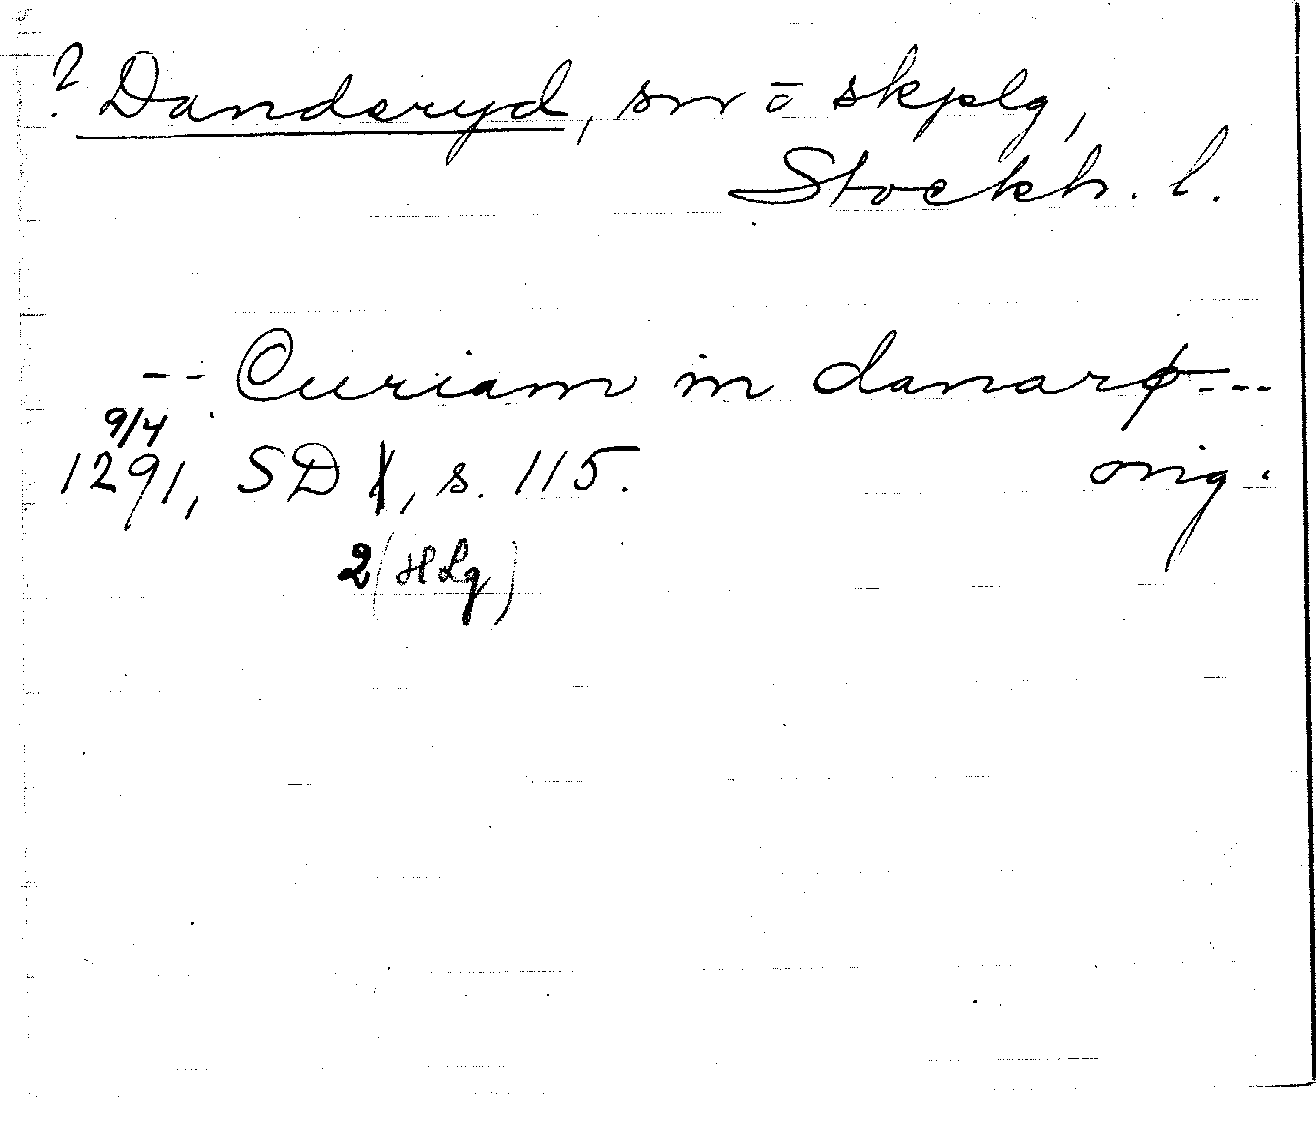 ? Danderyd, sn o skplg,
Stockh. l.
-- Curiam in danarø ---
9/4
1291, SD 1, s. 115. orig.
2 (HLg)